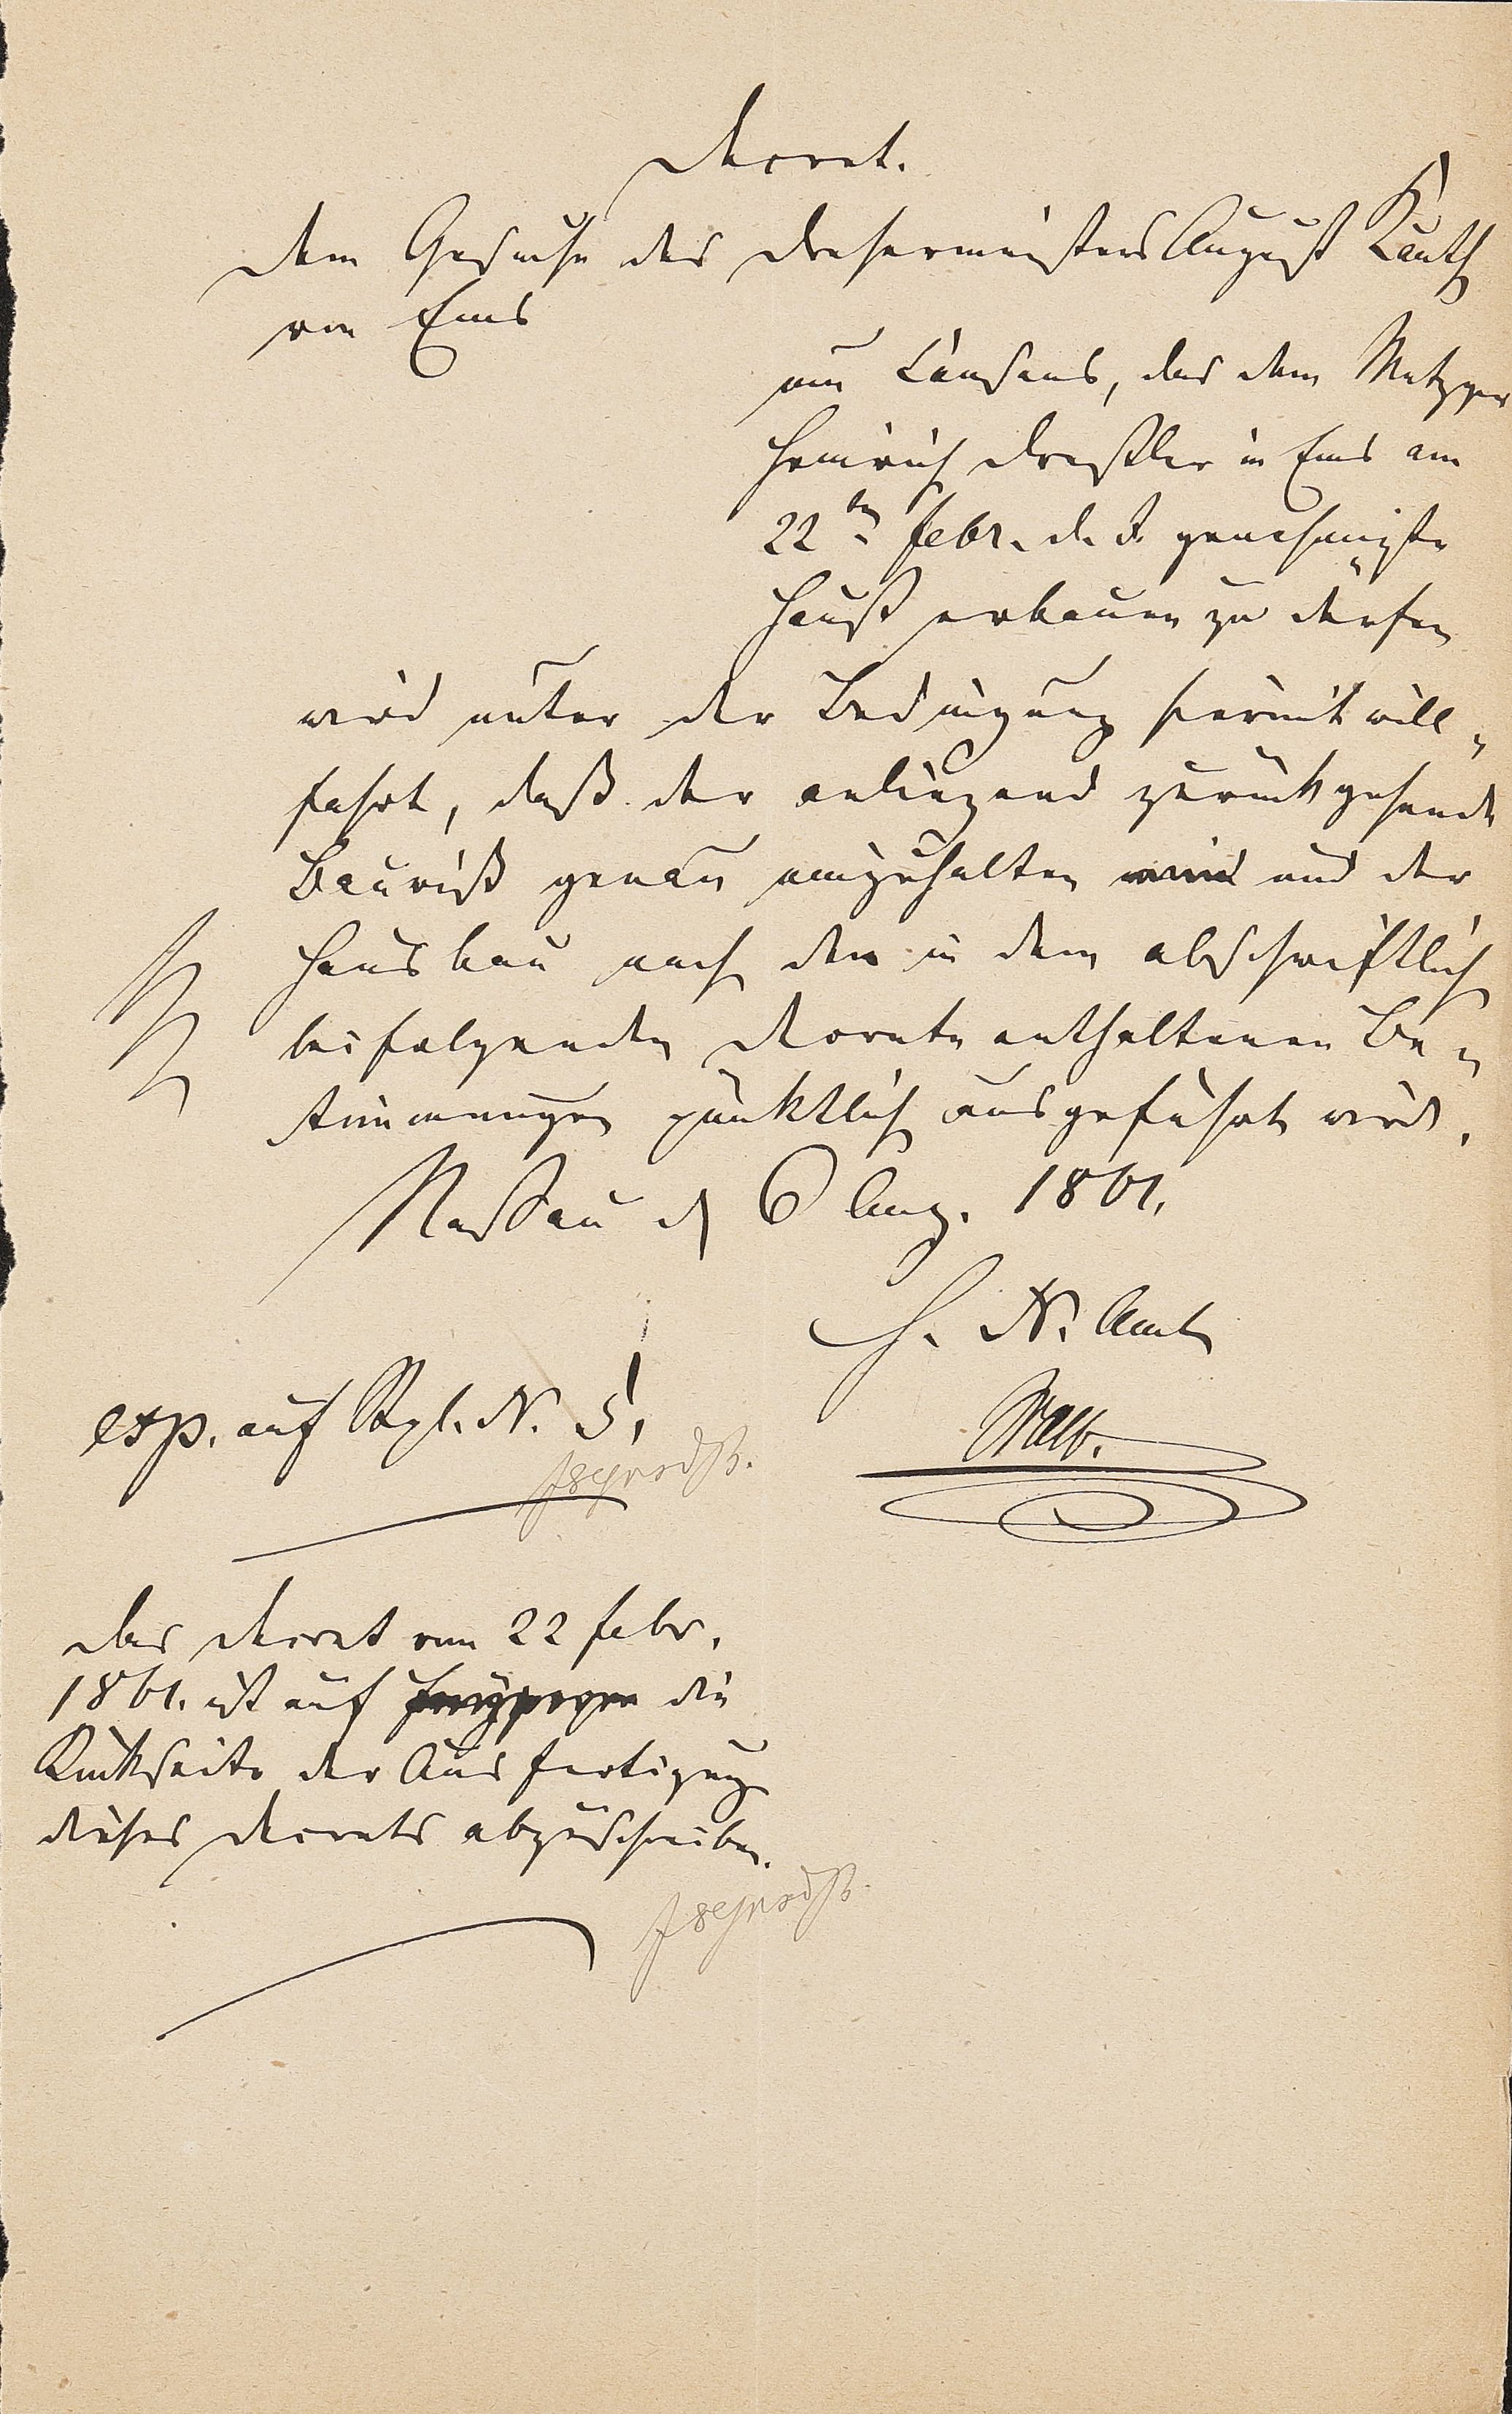 Decret.
Dem Gesuche des Drehermeisters August Kauth
von Ems
um Consens, das dem Metzger
Heinrich Dreßler in Ems am
22ten Febr. d. J. genehmigte
Hauß erbauen zu dürfen
wird unter der Bedingung hiermit will-
fahrt, daß der anliegend zurückgehende
Bauriß genau einzuhalten und der
Hausbau nach den in dem abschriftlich
beifolgenden Decrete enthaltenen Be-
stimmungen pünktlich ausgeführt wird.
Nassau d 6 Aug. 1861.
H. N. Amt
exp. auf Stpl. N. 5.
Das Decret vom 22 Febr.
1861. ist auf die
Rückseite der Ausfertigung
dieses Decrets abzuschreiben.